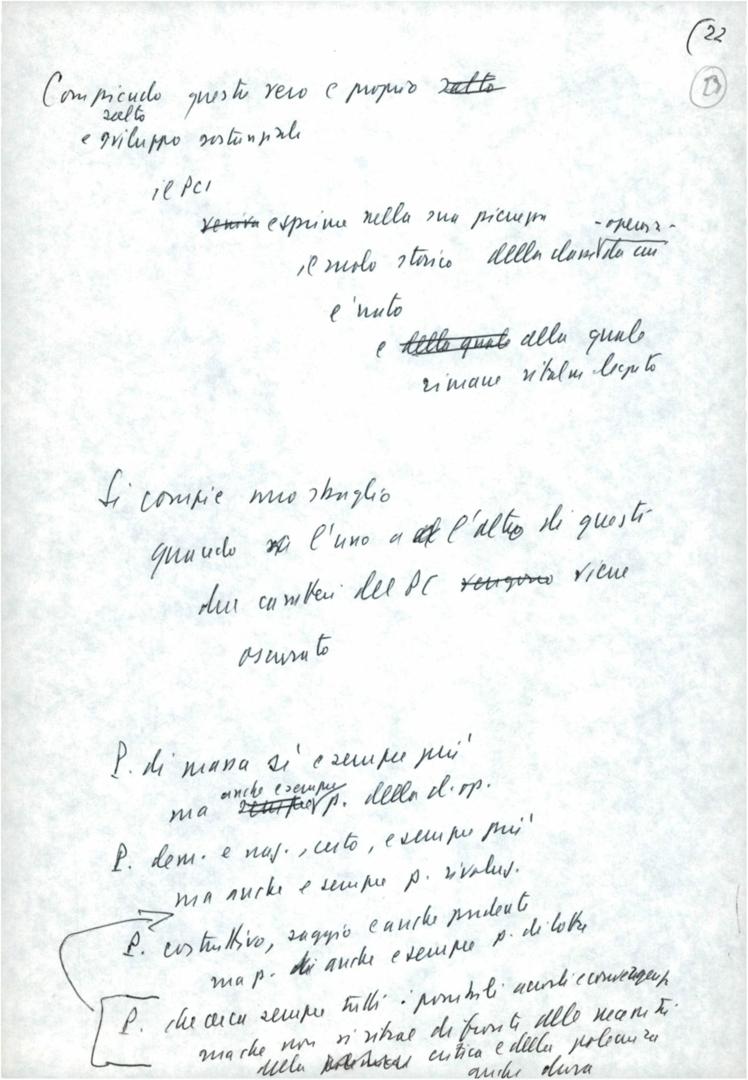 (22
B
Compiendo questo vero e proprio salto
salto
e sviluppo sostanziale
il PCI
veniva esprime nella sua pienezza -operaia-
il ruolo storico della classe da cui
e' nato
e della quale alla quale
rimane legato
Si compie uno sbaglio
quando l'uno o l'altro di questi
due caratteri del PC vengono viene
oscurato
P. di massa sì e sempre più
anche e sempre
ma sempre p. della cl. op.
P. dem. e naz., certo, e sempre più
ma anche e sempre p. rivoluz.
P. costruttivo, saggio e anche prudente
ma p. di anche e sempre p. di lotta
P. che cerca sempre tutti i possibili accordi e convergenze
ma che non si ritrae di fronte alle necessità
della critica e della polemica
anche dura